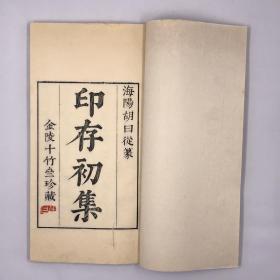 海陽胡曰從篆
印存初集
金陵十竹齋珍藏